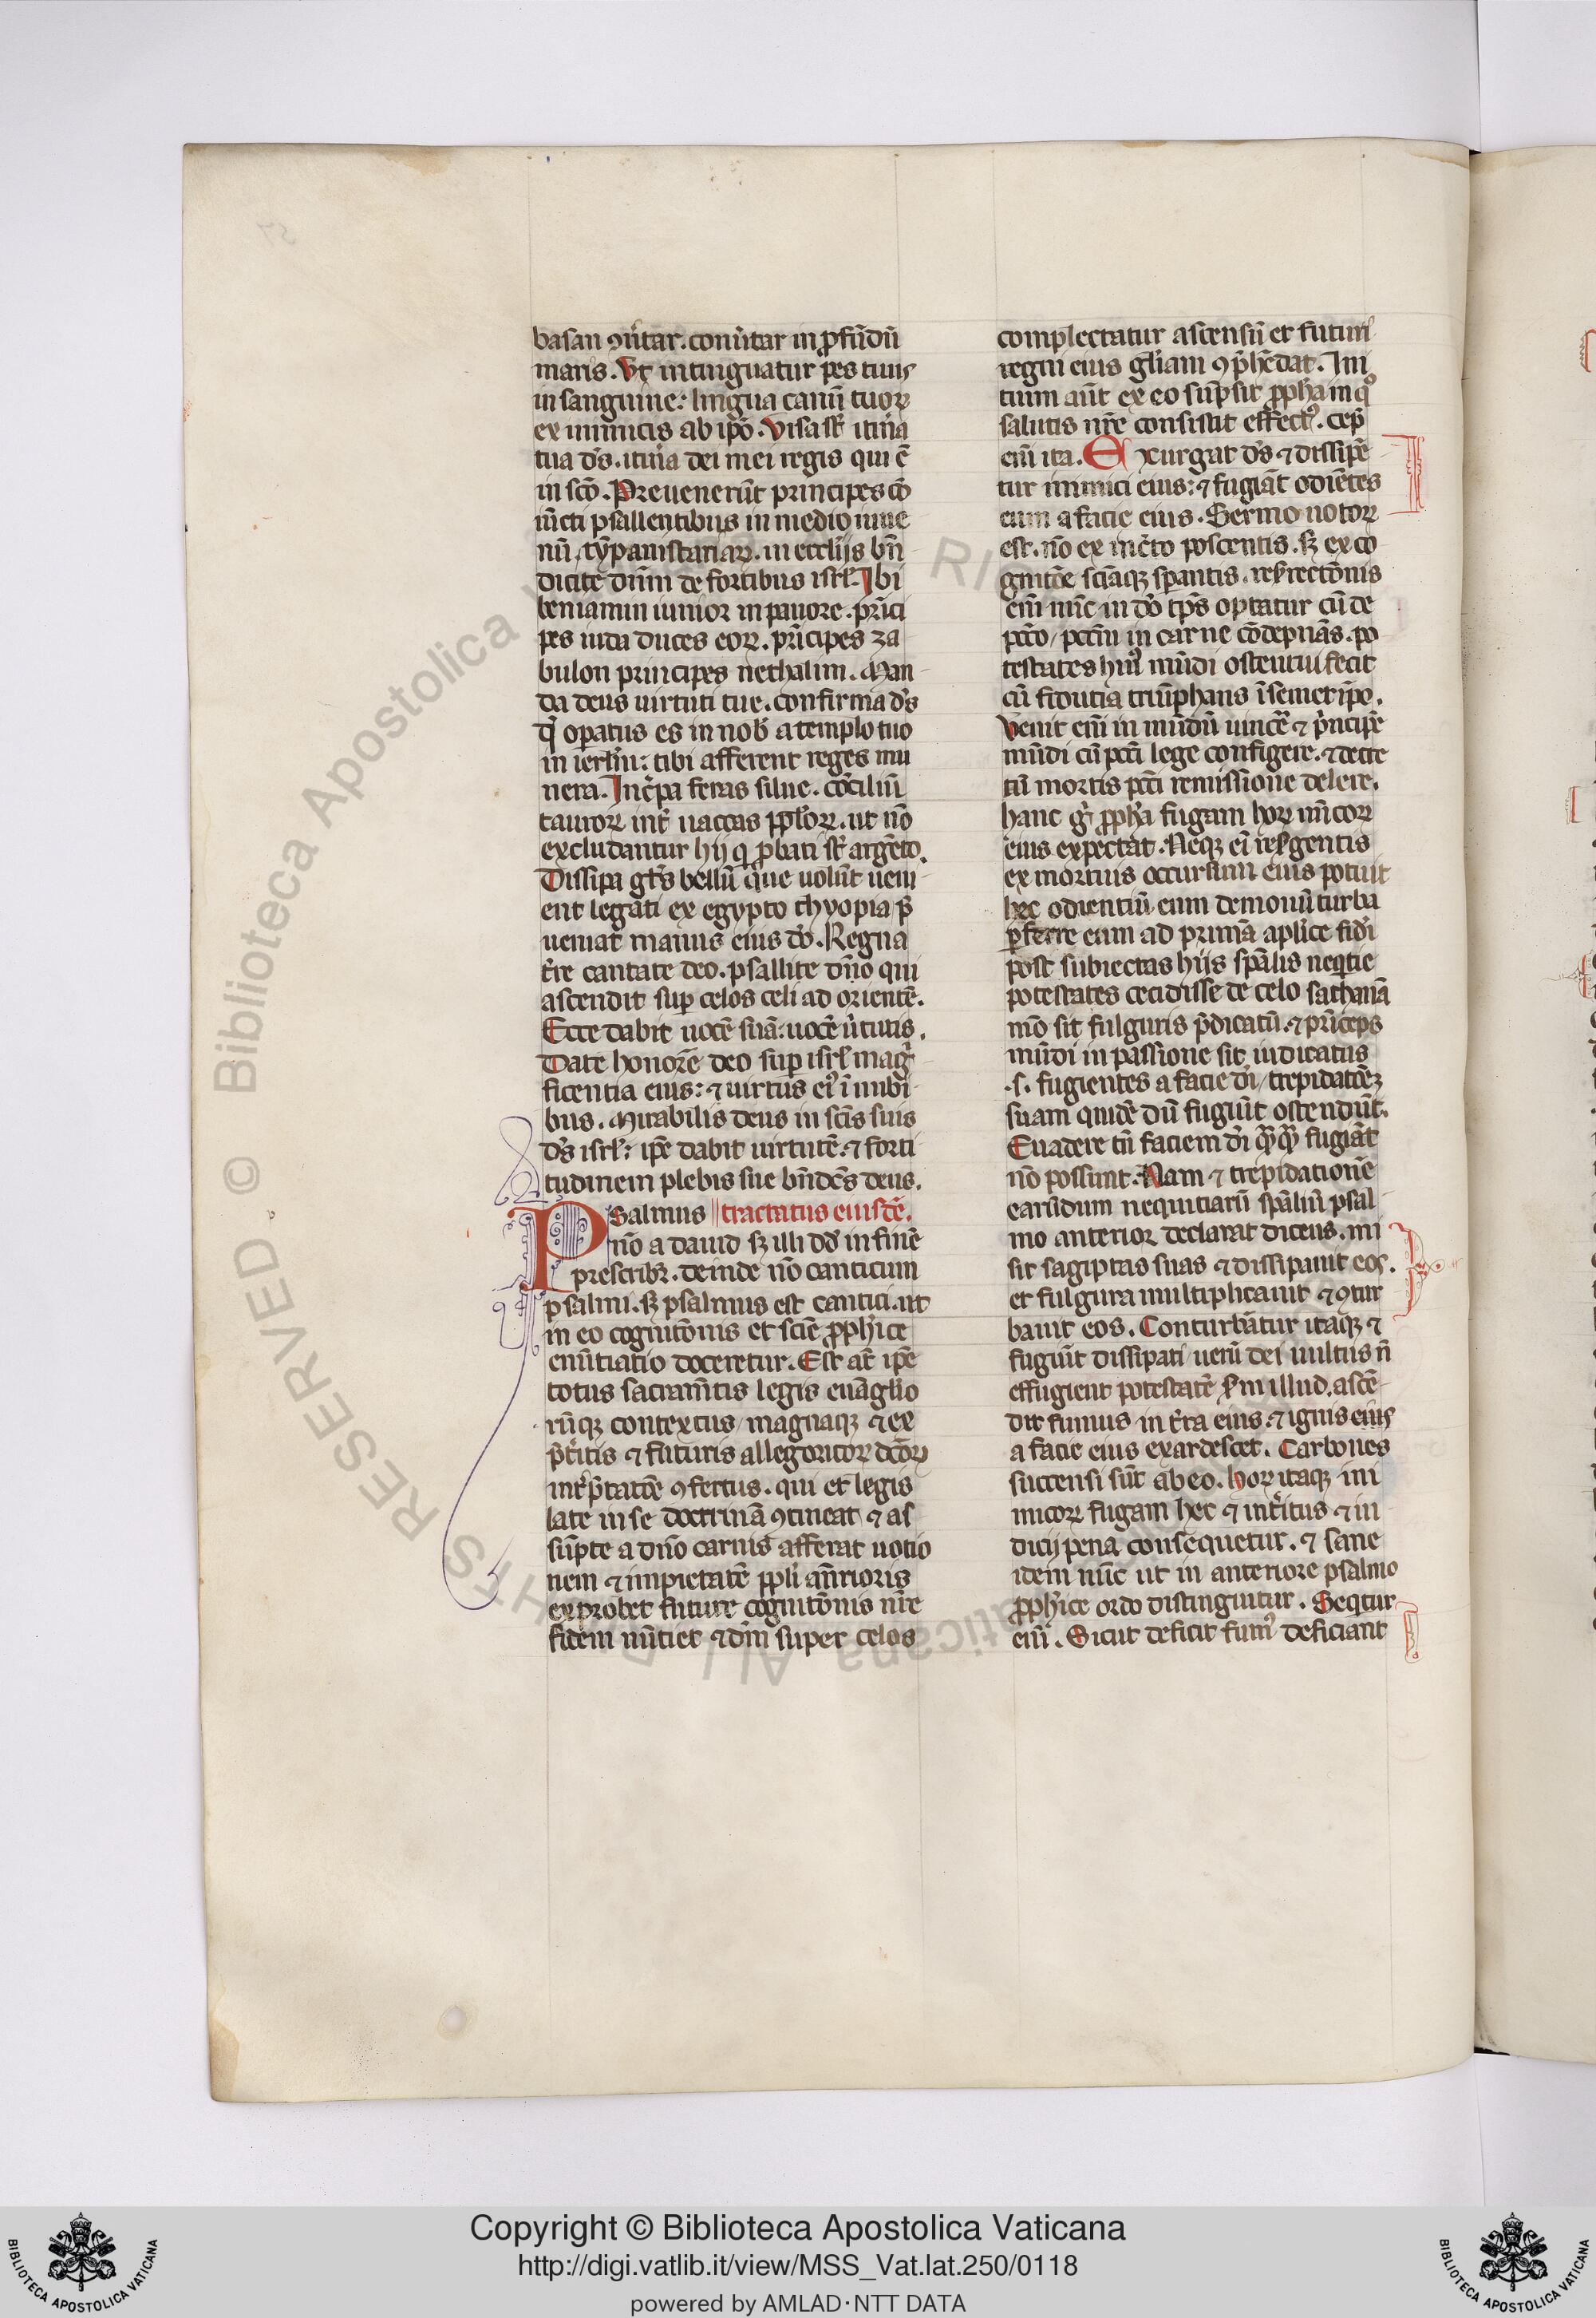 basan ↄu̾tar. conu̾tar in ꝓfūdū
maris. Vt intinguatur pes tuus
in sanguine: lingua canū tuoꝝ
ex inimicis ab ipō. Visa st̄ itin̾a
tua ds̄. itin̾a dei mei regis qui ē
in scō. Preuenerūt principes cō
iūcti psallentibus in medio iuue
nū tȳpanistriaꝝ. in eccl̄ijs bn̄
dicite dn̄m de fortibus isrl̄. Ibi
beniamin iunior in pauore. prīci
pes iuda duces eoꝝ. prīcipes za
bulon principes nethalim. Man
da deus uirtuti tue. confirma ds̄
qd̄ oꝑatus es in nob̄ a templo tuo
in ierl̄m: tibi afferent reges mu
nera. Inc̾pa feras silue. cōciliū
tauroꝝ int̾ uaccas ppl̄oꝝ. ut nō
excludantur hij q̇ ꝓbati st̄ argēto.
Dissipa gēs bellū que uolūt ueni
ent legati ex egypto thyopia p̄
ueniat manus eius dō. Regna
t̾re cantate deo. psallite dn̄o qui
ascendit suꝑ celos celi ad orientē.
Ecce dabit uocē suā: uocē u̾tutis.
Date honorē deo suꝑ isrl̄ magī
ficentia eius: ⁊ uirtus eiꝰ ī nubi
bus. Mirabilis deus in scīs suis
ds̄ isrl̄: ipē dabit uirtutē ⁊ forti
tudinem plebis sue bn̄dcs̄ deus.
Psalmus tractatus eiusdē.
nō a dauid sꝫ illi dd̄ in finē
prescribit̾. deinde nō canticum
psalmi. sꝫ psalmus est cantici. ut
in eo cognitōnis et scīe ꝓph̾ice
enūtiatio doceretur. Est at̄ ipē
totus sacram̄tis legis euāglio
rūqꝫ contextus magnaqꝫ ⁊ ex
p̄t̾itis ⁊ futuris allegoricoꝝ dcōꝝ
int̾p̄tatōe ↄfertus. qui et legis
late in se doctrinā ↄtineat ⁊ as
sūpte a dn̄o carnis afferat notio
nem ⁊ impietatē ppl̄i an̄rioris
exprobet future cognitōnis nr̄e
fidem nūtiet ⁊ dn̄m super celos
complectatur ascensū et futuri
regni eius gl̄iam ↄp̄hēdat. Ini
tium aūt ex eo sūpsit ꝓpha in qͦ
salutis nr̄e consistit effectꝰ. cep̄
eni ita. Exurgat ds̄ ⁊ dissipē
tur inimici eius: ⁊ fugiāt odiētes
eum a facie eius. Sermo notoꝝ
est. nō ex inc̾to poscentis. sꝫ ex co
gnitōe sciāqꝫ sꝑantis. resr̄rectōnis
eni nūc in dō tp̄s optatur cū de
pcc̄o pccm̄ in carne cōdepnās. po
testates huiꝰ mūdi ostentui fecit
cū fidutia triūphans ī semet ip̄o.
Venit eni in mūdū uincē ⁊ p̄ncipē
mūdi cū pcc̄i lege configere. ⁊ decre
tū mortis pcc̄i remissione delere.
hanc gͦ ꝓpha fugam hoꝝ inīcoꝝ
eius expectat. Neqꝫ ei resr̄gentis
ex mortuis occursum eius potuit
hec odientiū eum demonū turba
ꝑferre eum ad prima apl̄ice fidi
post subiectas hijs spālis neqtie
potestates cecidisse de celo sathanā
mō sit fulguris p̄dicatū. ⁊ prīceps
mūdi in passione sit iudicatus
.s. fugientes a facie di̇ trepidatōeꝫ
suam quidē dū fugiūt ostendūt.
Euadere tū faciem di̇ qͣꝫqͣꝫ fugiāt
nō possunt. Nam ⁊ trepidationē
earūdum nequitiarū spāliū psal
mo anterior declarat dicens. mi
sit sagiptas suas ⁊ dissipauit eos.
et fulgura multiplicauit ⁊ ↄtur
bauit eos. Conturbātur itaqꝫ ⁊
fugiūt dissipati uerū dei uultus n̄
effugient potestatē s̄m illud. ascē
dit fumus in t̾ra eius ⁊ ignis eius
a facie eius exardescet. Carbones
succensi sūt ab eo. hoꝝ itaqꝫ ini
micoꝝ fugam hec ⁊ int̾itus ⁊ iu
dicij pena consequetur. ⁊ sane
idem nūc ut in anteriore psalmo
ꝓph̾ice ordo distinguitur. Seqtur
eni. Sicut deficit fumꝰ deficiant
Copyright © Biblioteca Apostolica Vaticana
http://digi.vatlib.it/view/MSS_Vat.lat.250/0118
powered by AMLAD·NTT DATA
BIBLIOTECA APOSTOLICA VATICANA
BIBLIOTECA APOSTOLICA VATICANA